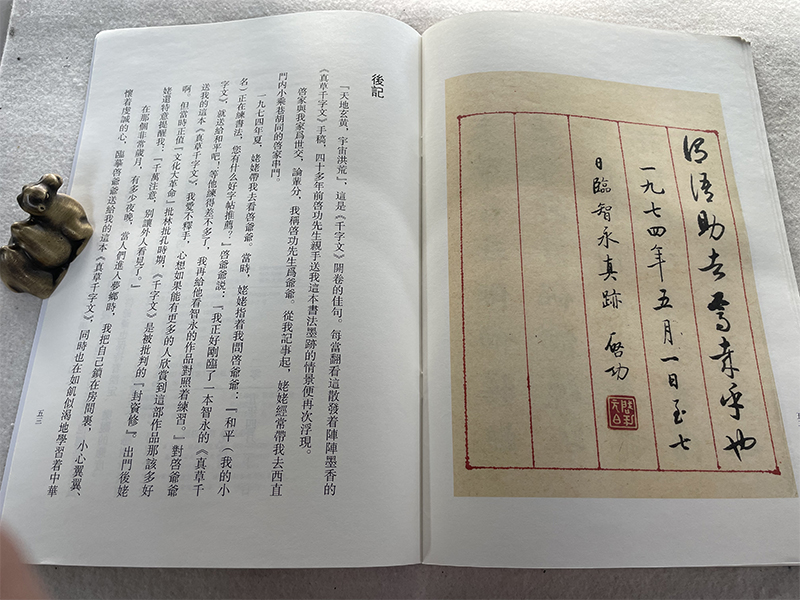 謂語助者焉哉乎也
一九七四年五月一日至七
日臨智永真跡 啓功
後記
「天地玄黄，宇宙洪荒」，這是《千字文》開卷的佳句。每當翻看這散發着陣陣墨香的
《真草千字文》手稿，四十多年前啓功先生親手送我這本書法墨跡的情景便再次浮現。
啓家與我家爲世交，論輩分，我稱啓功先生爲爺爺。從我記事起，姥姥經常帶我去西直
門内小乘巷胡同的啓家串門。
一九七四年夏，姥姥帶我去看啓爺爺。當時，姥姥指着我問啓爺爺：「和平（我的小
名）正在練書法，您有什么好字帖推薦？」啓爺爺説：「我正好剛臨了一本智永的《真草千
字文》，就送給和平吧！等他練得差不多了，我再給他看智永的作品對照着練習。」對啓爺爺
送我的這本《真草千字文》，我愛不釋手，心想如果能有更多的人欣賞到這部作品那該多好
啊，但當時正值「文化大革命」批林批孔時期，《千字文》是被批判的『封資修』。出門後姥
姥還特意提醒我：「千萬注意，别讓外人看見了。」
在那個非常歲月，有多少夜晚，當人們進入夢鄉時，我把自己鎖在房間裏，小心翼翼、
懷着虔誠的心，臨摹啓爺爺送給我的這本《真草千字文》，同時也在如飢似渴地學習着中華
五三